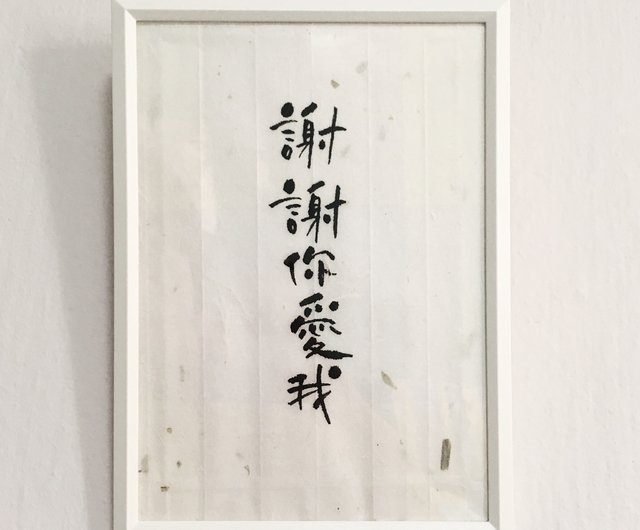 謝謝你愛我